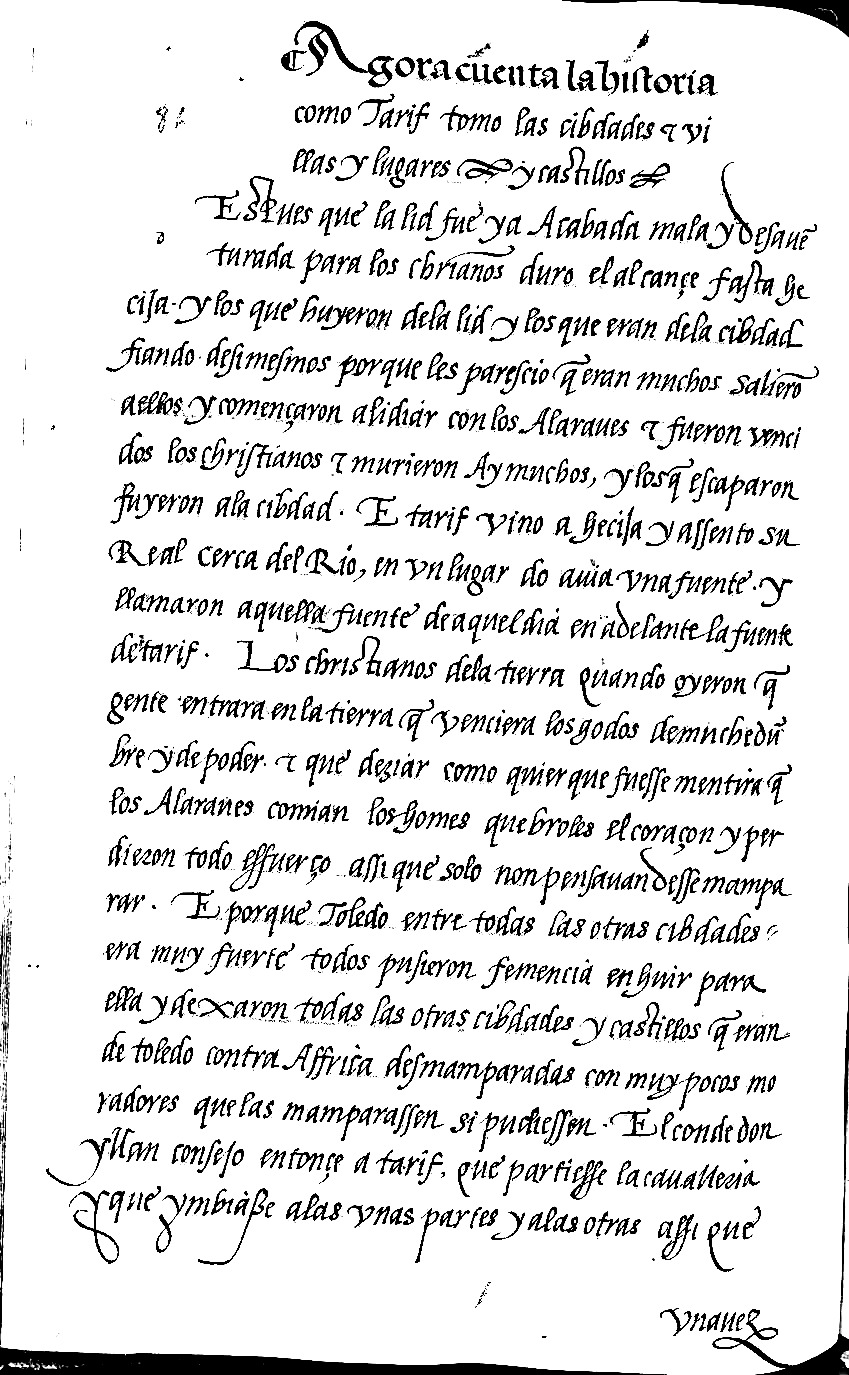 Agora cuenta la historia
como Tarif tomo las cibdades & vi
llas y lugares y castillos
Espues que la lid fue ya Acabada mala y desauē
turada para los christianos duro el alcançe fasta he
cija. y los que huyeron dela lid y los que eran dela cibdad
fiando desi mesmos porque les parescio q̄ eran muchos Salierō
aellos y començaron alidiar con los Alaraues & fueron venci
dos los christianos & murieron Ay muchos, y los q̄ escaparon
fuyeron ala cibdad. E tarif vino a hecija y assento su
Real Cerca del Rio, en vn lugar do auia vna fuente. y
llamaron aquella fuente de aquel dia en adelante la fuente
de tarif. Los christianos dela tierra quando oyeron q̄
gente entrara en la tierra q̄ venciera los godos de muchedū
bre y de poder. & que deziar como quier que fuesse mentira q̄
los Alaraues comian los homes quebroles el coraçon y per
dieron todo esfuerço assi que solo non pensauan desse mampa
rar. E porque Toledo entre todas las otras cibdades
era muy fuerte todos pusieron femencia en huir para
ella y dexaron todas las otras cibdades y castillos q̄ eran
de toledo contra Affrica desmamparadas con muy pocos mo
radores que las mamparassen si pudiessen. El conde don
yllan consejo entonçe a tarif, que partiesse la caualleria
y que ymbiasse alas vnas partes y alas otras assi que
vna vez